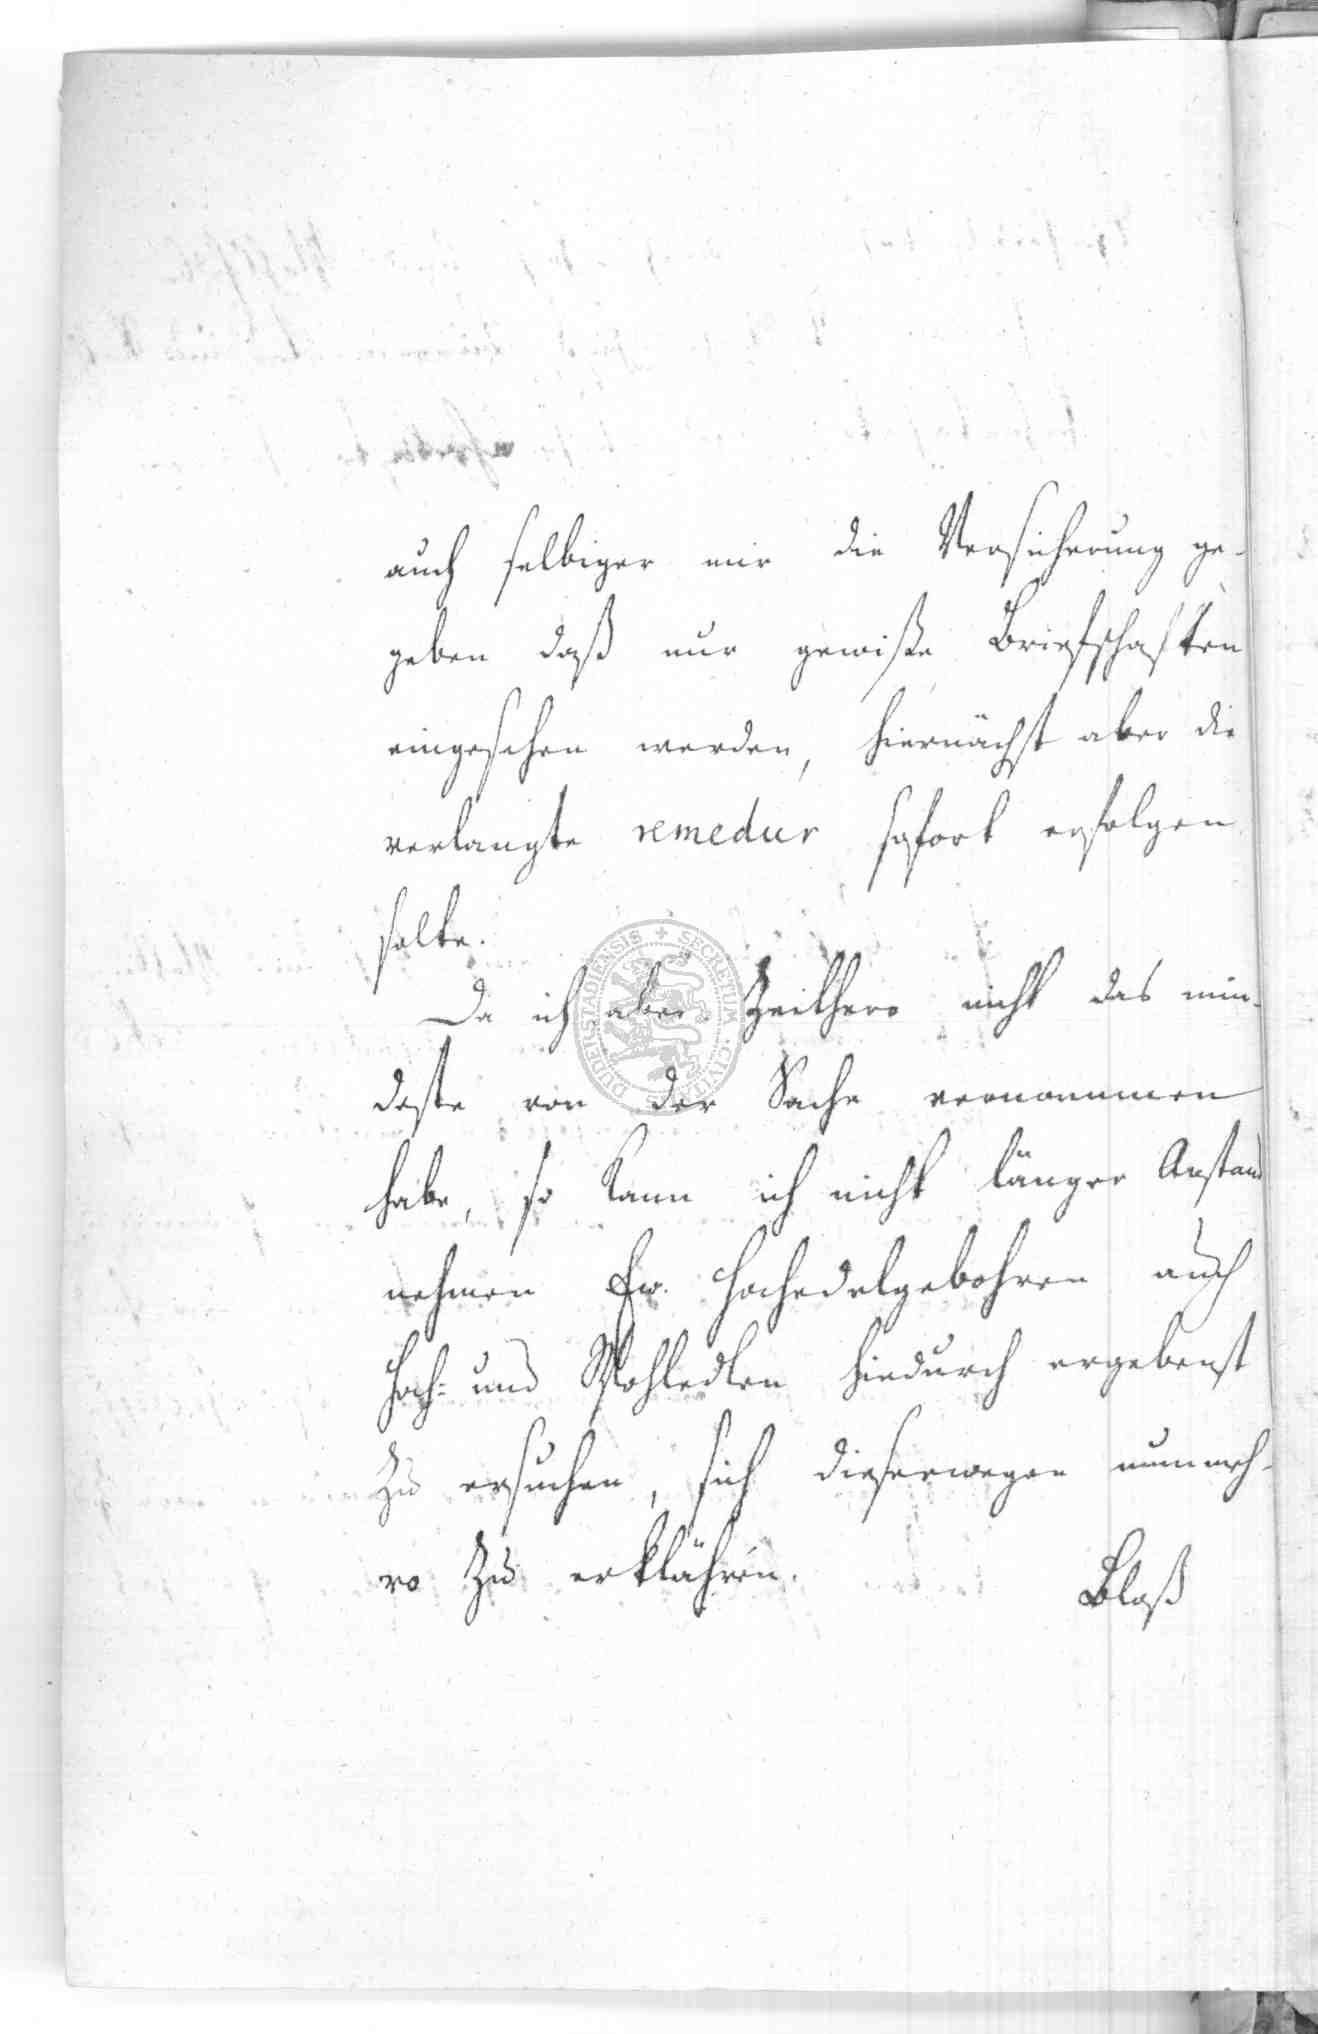 auch selbiger mir die Versicherung ge-
geben daß nur gewiße Briefschaften
eingesehen werden, hiernächst aber die
verlangte remedur sofort erfolgen
solte.
Da ich aber Zeithero nicht das min-
deste von der Sache vernommen
habe, so kann ich nicht länger Anstand
nehmen Ew. Hochedelgebohren auch
Hoch- und Wohledlen hiedurch ergebenst
zu ersuchen, sich dieserwegen nunmeh-
ro zu erklähren.
Bloß
SECRETUM CIVITATIS DUDERSTADIENSIS